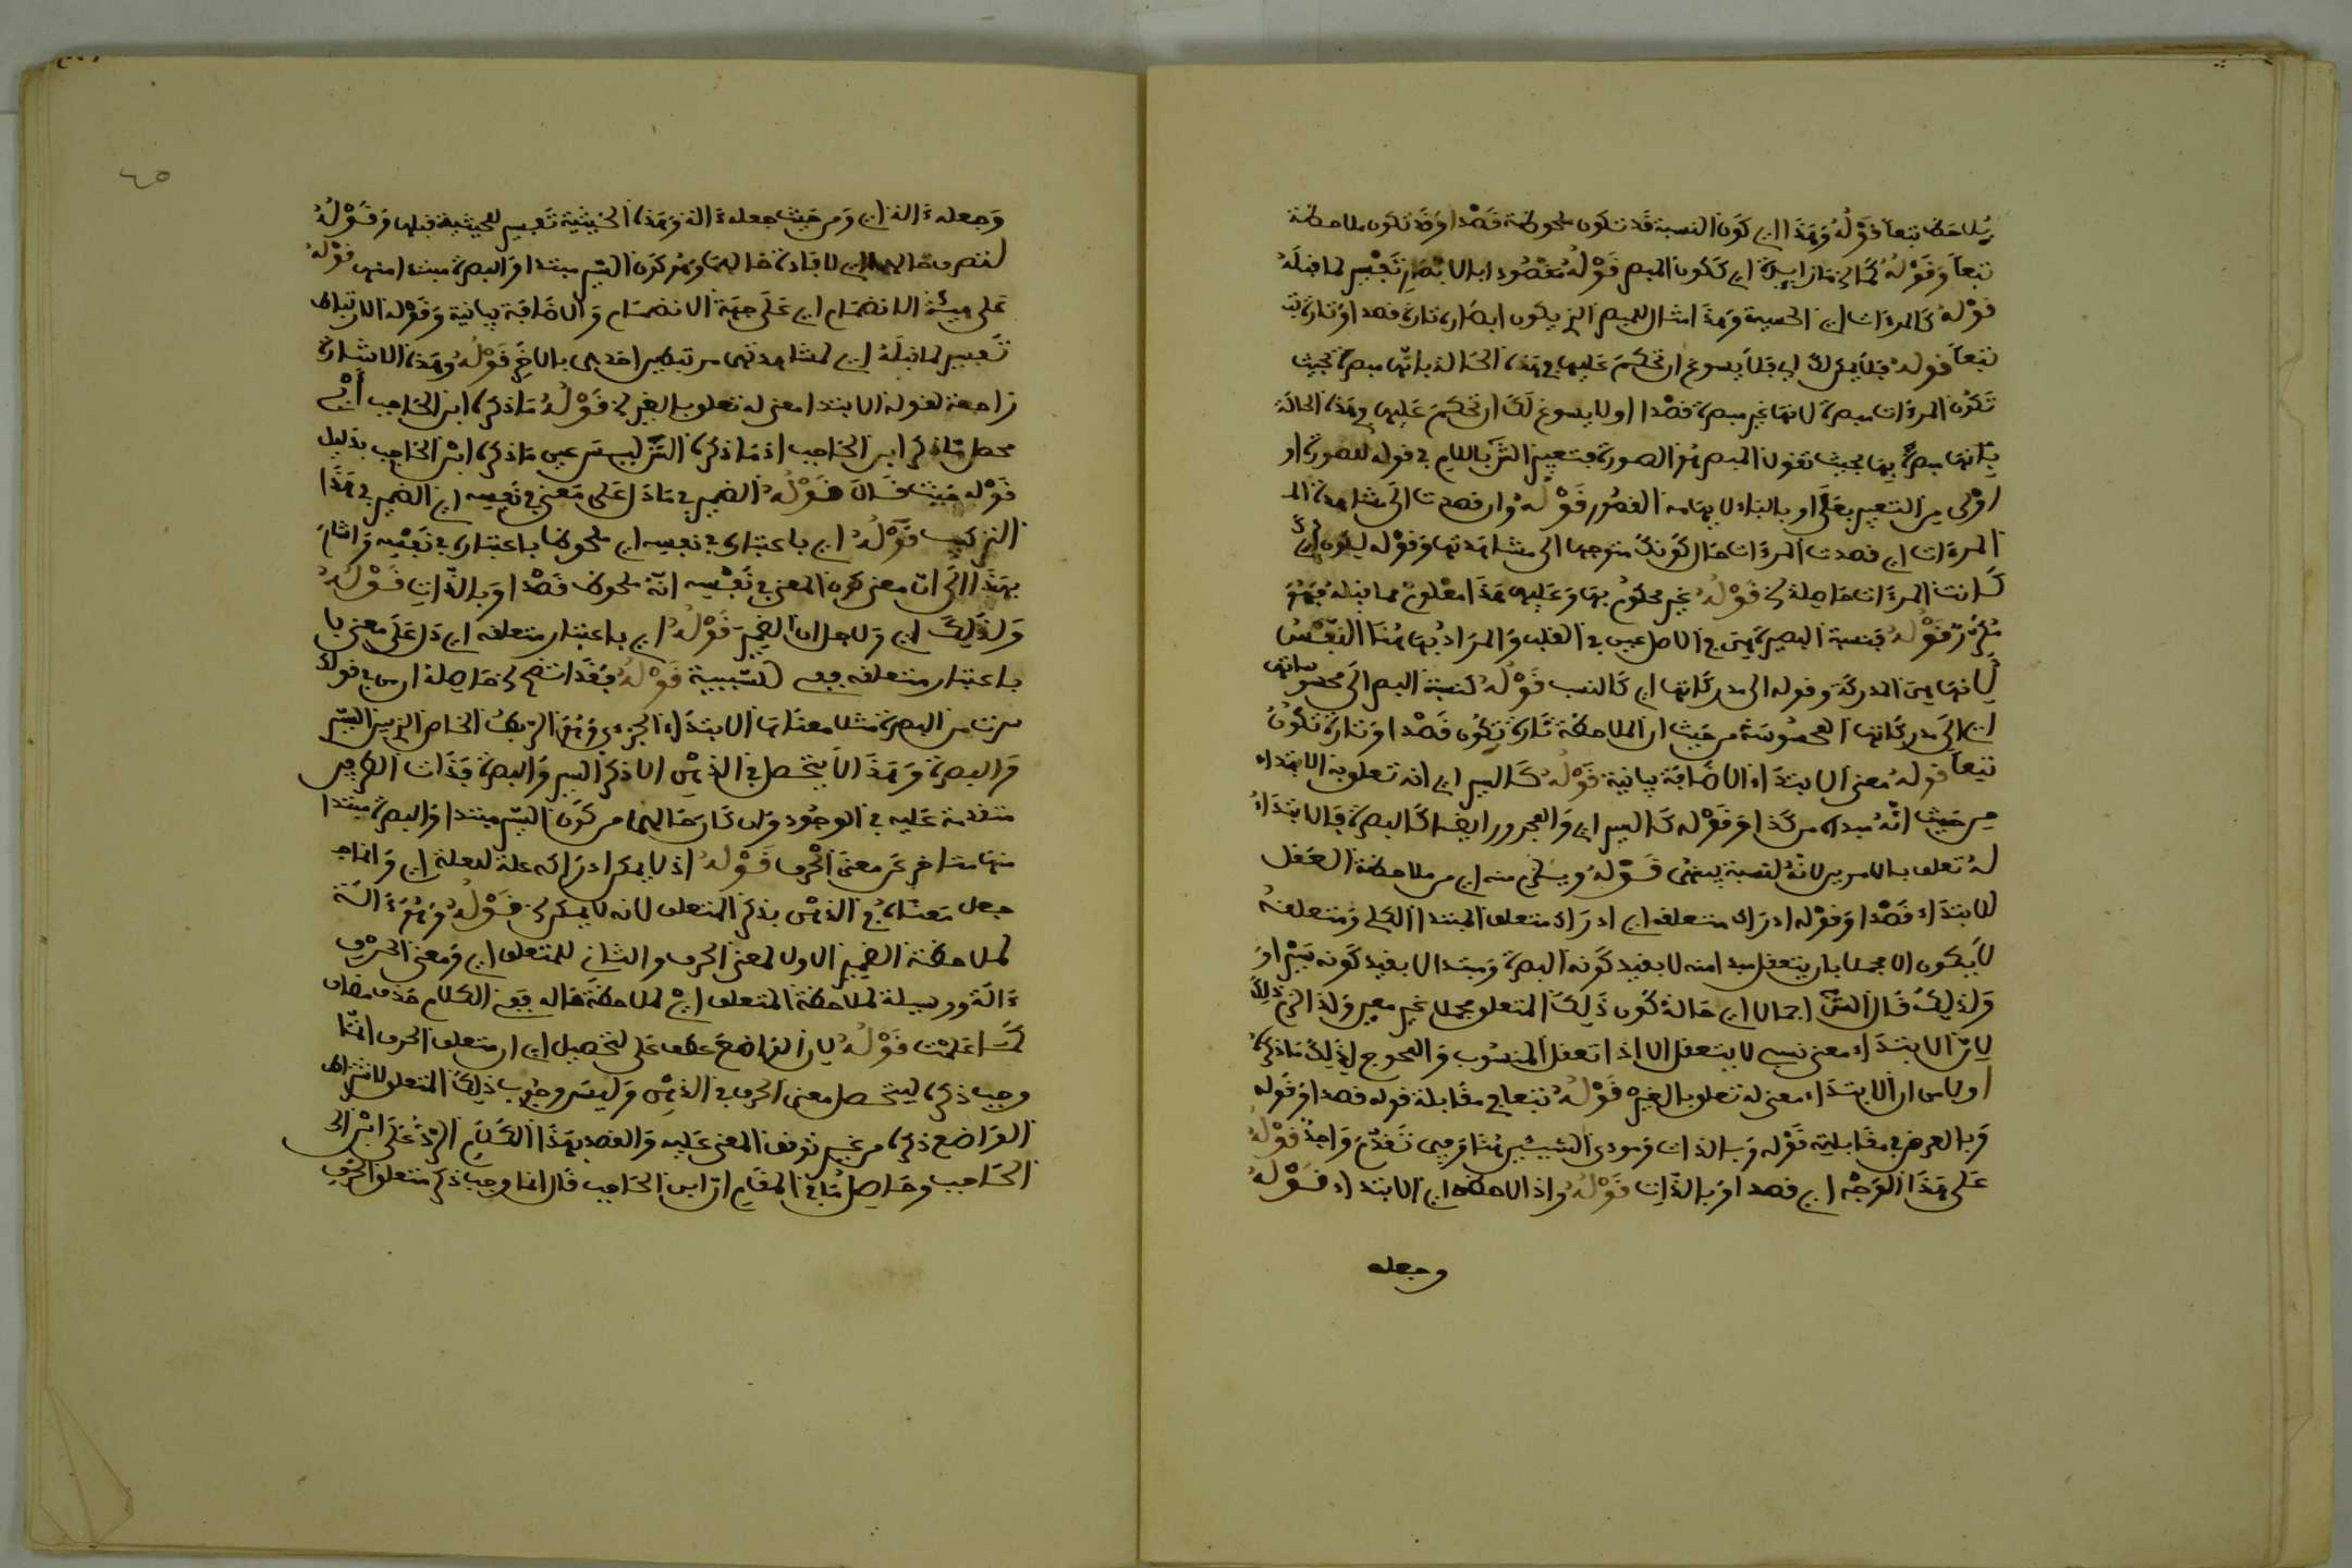 يلاحظ تبعا قوله وهذا اي كون النسبة قد تكون ملحوظة قصدا وقد تكون ملاحظة
تبعا وقوله كما في اي كون المبصر قوله مقصود ابالابصار تفسير لما قبله
قوله كالمرءات اي الحسية وهذا مثال للمبصر الذي يكون ابصاره تارة قصدا وتارة
تبعا قوله فلا يمكن لك اي فلا يسوغ ان تحكم عليها في هذه الحالة بانها مبصرة بحيث
تكون المرءات مبصرة لانها غير مبصرة قصدا او لا يسوغ لك ان تحكم عليها في هذه الحالة
بانها مبصرة بها بحيث تقول المبصر هو الصورة فتعبير الش باللام في قوله للصورة او
اولى من التعبير بعلى او بالباء لايهامه القصور قوله وان قصدت الى مشاهدة المـ
المرءات اي قصدت المرءات حال كونك متوجها الى مشاهدتها وقوله ليكون اي
كانت المرءات حاصلة قوله غير محكوم بها وعليها هذا معلوم مما قبله فهو
مكرر قوله فنسبة البصيرة هي في الاصل عين في القلب والمراد بها هنا النفس
لانها هي المدركة وقوله الى مدركاتها اي كالنسب قوله كنسبة البصر الى محسوساتها
اي الى مدركاتها المحسوسة من حيث ان الملاحظة تارة تكون قصدا وتارة تكون
تبعا قوله معنى الابتداء الاضافة بيانية قوله كالسير اي انه تعلق به الابتداء
من حيث انه مبدء من كذا وقوله كالسير اي والمجرور ايضا كالبصرة فالابتداء
له تعلق بالامرين لانه لنسبة بينهما قوله ويلزم منه اي من ملاحظة العقل
للابتداء قصدا وقوله ادراك متعلقه اي ادراك متعلق المبتدا الكلي ومتعلقه
لا يكون الا مجملا بان يتعقل مبدا منه لا بقيد كونه البصرة ومبتدا لا بقيد كونه سيرا و
ولذلك قال الش اجمالا اي حالة كون ذلك المتعلق مجملا غير معين ولذا لزم ذلك
لان الابتداء معنى نسبي لا يتعقل الا اذا تعقل المنسوب والمحوج لذلك ما ذكره
اولا من ان الابتداء معنى له تعلق بالغير قوله تبعا في مقابلة قوله قصدا وقوله
وبالعرض في مقابلة قوله وبالذات ومودى الشيئين هنا وفيما تقدم واحد قوله
على هذا الوجه اي قصدا وبالذات قوله واذا لاحظه اي الابتداء قوله
وجعله
٤٥
وجعله ءالة اي ومن حيث جعله ءالة وهذه الحيثية تفسير للحيثية قبلها وقوله
لتعرف حالهما اي لافادة حالهما وهو كون السير مبتدا والبصرة مبتدا منها قوله
على هيئة الانضمام اي على جهة الانضمام والاضافة بيانية وقوله الارتباط
تفسير لما قبله اي لمشاهدتهما مرتبطين احدهما بالاخر قوله وهذه الاشارة
راجعة لقوله الابتدا معنى له تعلق بالغير قوله ما ذكره ابن الحاجب اي
محصل ما ذكر ابن الحاجب اذ ما ذكره الش ليس عين ما ذكره ابن الحاجب بدليل
قوله حيث قال قوله الضمير في ما دل على معنى في نفسه اي الضمير في هذا
التركيب قوله اي باعتباره في نفسه اي ملحوظا باعتباره في نفسه واشار
بهذا الى ان معنى كون المعنى في نفسه انه ملحوظ قصدا وبالذات قوله
ولذلك اي ولاجل ان الضمير قوله اي باعتبار متعلقه اي دل على معنى با
باعتبار متعلقه ففي للسببية قوله فقد اتضح حاصله ان من في قولك
سرت من البصرة مثلا معناها الابتداء الجزءي وهو الربط الخاص الذي بين السير
والبصرة وهذا لا يتحصل في الذهن الا ذكر السير والبصرة فذات الطرفين
متقدمة عليه في الوجود وان كان حالهما من كون السير مبتدا والبصرة مبتدا
منها متاخر عن معنى الحرف قوله اذ لا يمكن ادراكه علة للعلة اي وانما
جعل معناه في الذهن بذكر المتعلق لانه لا يمكن قوله وهو ءالة
لملاحظة الضمير الاول لمعنى الحرف والثاني للمتعلق اي ومعنى الحرف
ءالة ووسيلة لملاحظة المتعلق اي لملاحظة حاله ففي الكلام حذف مضاف
كما علمت قوله لان الواضع عطف على لتحصيل اي ان متعلق الحرف انما
وجب ذكره ليتحصل معنى الحرف في الذهن وليس وجوب ذلك المتعلق لاشتراط
الواضع ذكره من غير توقف المعنى عليه والقصد بهذا الكلام الرد على ابن الحـ
الحاجب وحاصل ما في المقام ان ابن الحاجب قال انما وجب ذكر متعلق الحرف